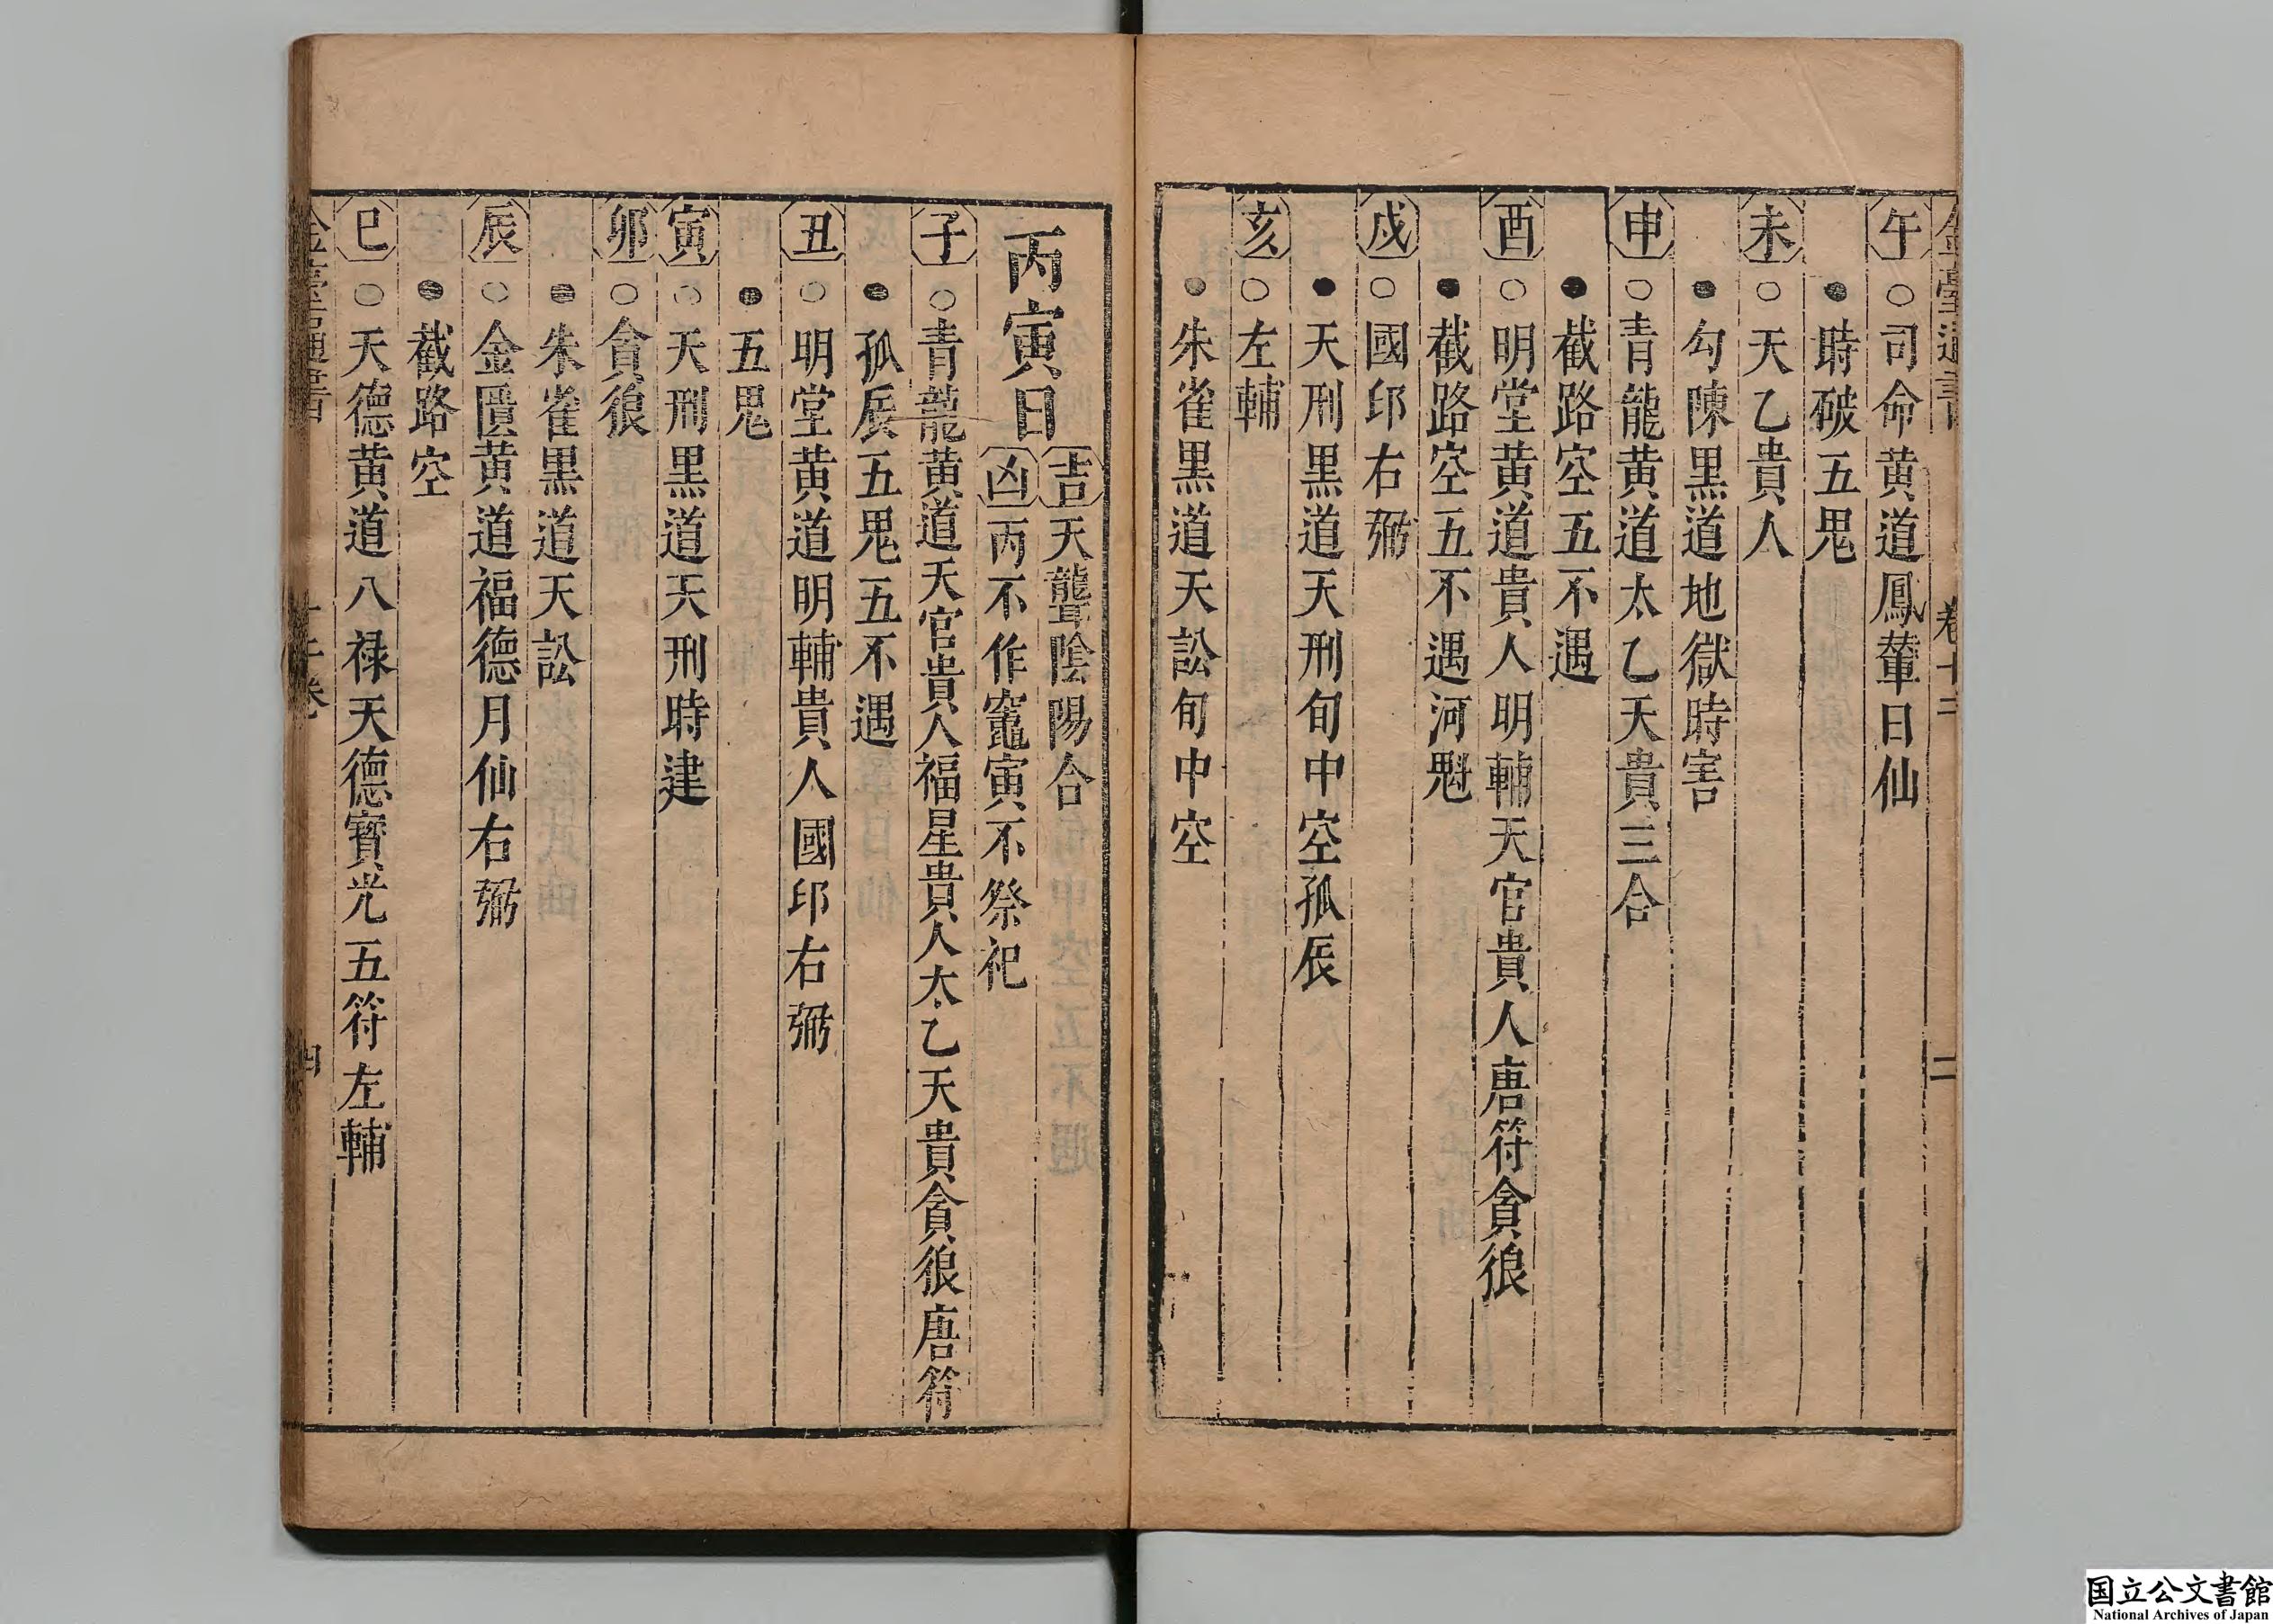 午○司命黄道鳳輦日仙
●時破五鬼
未○天乙貴人
●勾陳黒道地獄時害
申○青龍黄道太乙天貴三合
●截路空五不遇
酉○明堂黄道貴人明輔天官貴人唐符貪狼
●截路空五不遇河魁
戍○國印右弼
●天刑黒道天刑旬中空孤辰
亥○左輔
●朱雀黒道天訟旬中空
丙寅日
吉天聾陰陽合
凶丙不作竈寅不祭祀
子○青龍黄道天官貴人福星貴人太乙天貴貪狼唐符
●孤辰五鬼五不遇
丑○明堂黄道明輔貴人國印右弼
●五鬼
寅○天刑黒道天刑時建
卯○貪狼
●朱雀黒道天訟
辰○金匱黄道福德月仙右弼
●截路空
巳○天德黄道八禄天德寳光五符左輔
国立公文書館
National Archives of Japan